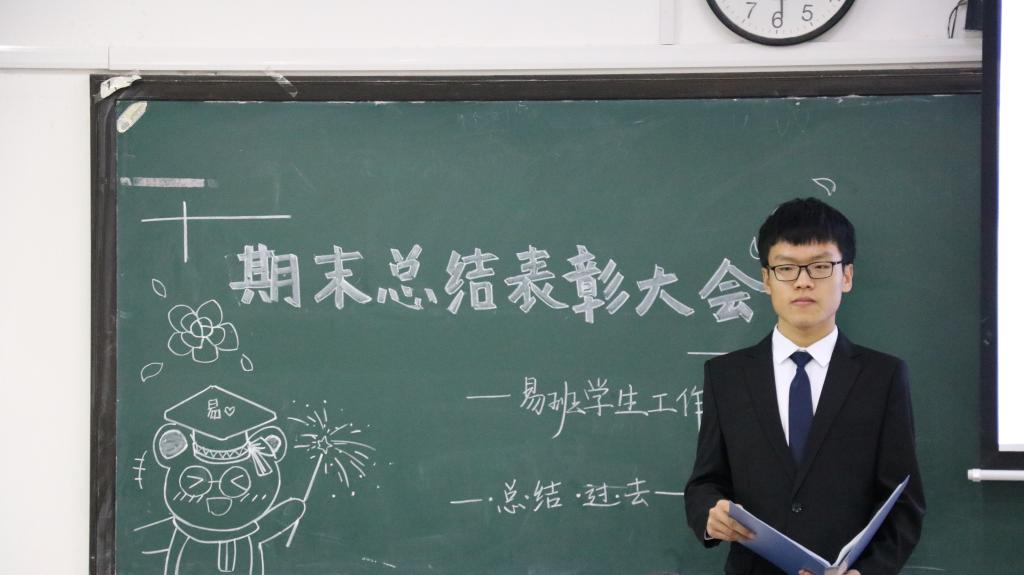 7 6 5
期末总结表彰大会
一易班学生工作
一·总结·过·去一
易♡